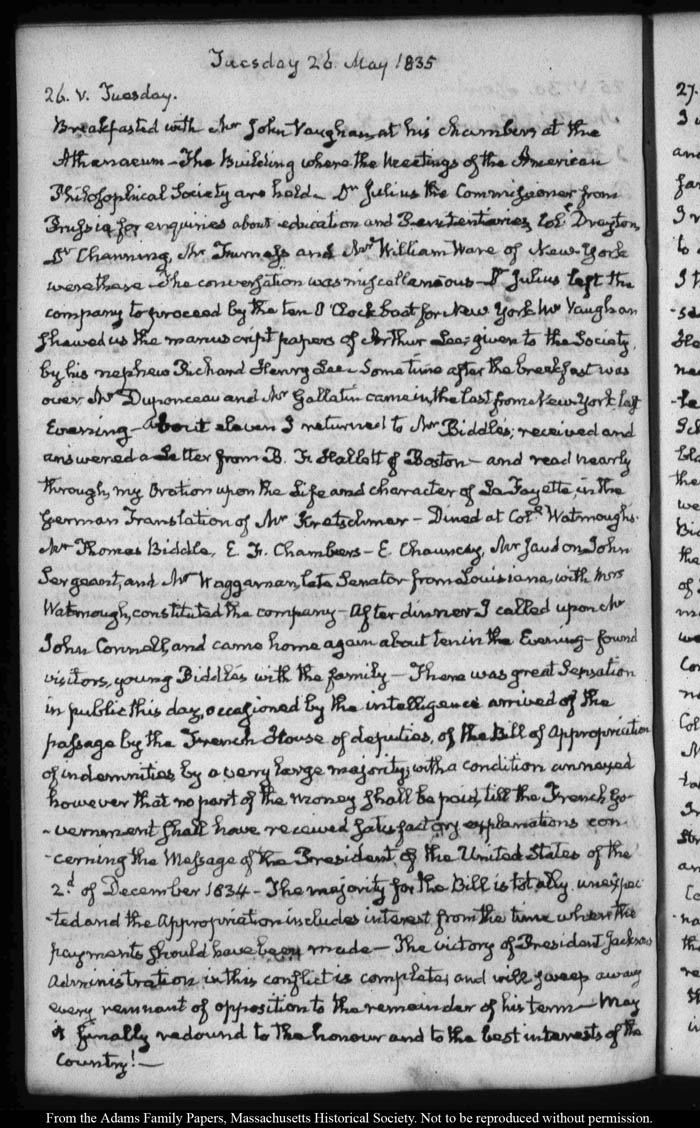 Tuesday 26 May 1835
26. V. Tuesday.
Breakfasted with Mr John Vaughan at his chambers at the
Athenaeum — The Building where the Meetings of the American
Philosophical Society are held — Dr Julius the Commissioner from
Prussia for enquiries about education and Penitentiaries, Coll Drayton,
Dr Channing, Mr Furness and Mr William Ware of New-York
were there — The conversation was miscellaneous — Dr Julius left the
company to proceed by the ten O'Clock boat for New York Mr Vaughan
shewed us the manuscript papers of Arthur Lee; given to the Society
by his nephew Richard Henry Lee — Some time after the breakfast was
over Mr Duponceau and Mr Gallatin came in, the last from New York last
Evening — About eleven I returned to Mr Biddle's; received and
answered a Letter from B. F. Hallett of Boston — and read nearly
through, my Oration upon the Life and character of La Fayette, in the
German Translation of Mr Kretschmar — Dined at Coll Watmough's.
Mr Thomas Biddle, E. F. Chambers — E. Chauncey, Mr Jaudon John
Sergeant, and Mr Waggaman, late Senator from Louisiana, with Mrs
Watmough, constituted the company — After dinner I called upon Mr
John Connell, and came home again about ten in the Evening — found
visitors, young Biddles with the family — There was great Sensation
in public this day, occasioned by the intelligence arrived of the
passage by the French House of deputies, of the Bill of Appropriation
of indemnities by a very large majority; with a condition annexed
however that no part of the money shall be paid, till the French Go-
-vernment shall have received satisfactory explanations con-
-cerning the Message of the President of the United States of the
2d of December 1834 — The majority for the Bill is totally unexpec-
-ted and the Appropriation includes interest from the time when the
payments should have been made — The victory of President Jackson's
Administration in this conflict is complete, and will sweep away
every remnant of opposition to the remainder of his term — May
it finally redound to the honour and to the best interests of the
Country! —
27.
From the Adams Family Papers, Massachusetts Historical Society. Not to be reproduced without permission.